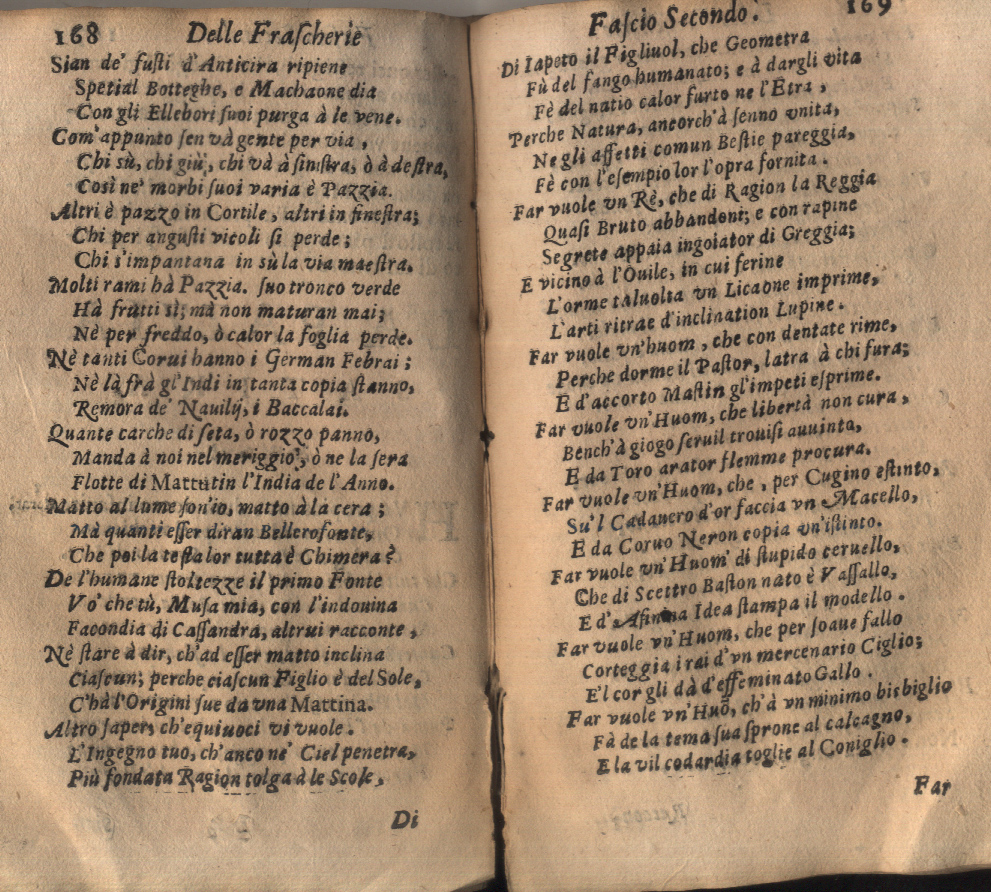 168 Delle Fraſcherie
Sian de' fuſti d'Anticira ripiene
Spetial Botteghe, e Machaone dia
Con gli Ellebori ſuoi purga à le vene.
Com'appunto ſen và gente per via,
Chi sù, chi giù, chi và à ſiniſtra, ò à deſtra,
Così ne' morbi ſuoi varia è Pazzia.
Altri è pazzo in Cortile, altri in fineſtra;
Chi per anguſti vicoli ſi perde;
Chi s'impantana in sù la via maeſtra.
Molti rami hà Pazzia. ſuo tronco verde
Hà frutti sì; mà non maturan mai;
Nè per freddo, ò calor la foglia perde.
Nè tanti Corui hanno i German Febrai;
Nè là frà gl'Indi in tanta copia ſtanno,
Remora de' Nauilij, i Baccalai.
Quante carche di ſeta, ò rozzo panno,
Manda à noi nel meriggio, ò ne la ſera
Flotte di Mattutin l'India de l'Anno.
Matto al lume ſon'io, matto à la cera;
Mà quanti eſſer diran Bellerofonte,
Che poi la teſta lor tutta è Chimera?
De l'humane ſtoltezze il primo Fonte
Vo' che tù, Muſa mia, con l'indouina
Facondia di Caſſandra, altrui racconte,
Nè ſtare à dir, ch'ad eſſer matto inclina
Ciaſcun; perche ciaſcun Figlio è del Sole,
C'hà l'Origini ſue da vna Mattina.
Altro ſaper, ch'equiuoci vi vuole.
L'Ingegno tuo, ch'anco ne' Ciel penetra,
Più fondata Ragion tolga à le Scole,
Di
Faſcio Secondo. 169
Di Iapeto il Figliuol, che Geometra
Fù del fango humanato; e à dargli vita
Fè del natio calor furto ne l'Etra,
Perche Natura, ancorch'à ſenno vnita,
Ne gli affetti comun Beſtie pareggia,
Fè con l'eſempio lor l'opra fornita.
Far vuole vn Rè, che di Ragion la Reggia
Quaſi Bruto abbandoni; e con rapine
Segrete appaia ingoiator di Greggia;
E vicino à l'Ouile, in cui ferine
L'orme taluolta vn Licaone imprime,
L'arti ritrae d'inclination Lupine.
Far vuole vn'huom, che con dentate rime,
Perche dorme il Paſtor, latra à chi fura;
E d'accorto Maſtin gl'impeti eſprime.
Far vuole vn'Huom, che libertà non cura,
Bench'à giogo ſeruil trouiſi auuinto,
E da Toro arator flemme procura.
Far vuole vn'Huom, che, per Cugino eſtinto,
Su'l Cadauero d'or faccia vn Macello,
E da Coruo Neron copia vn'iſtinto.
Far vuole vn'Huom' di ſtupido ceruello,
Che di Scettro Baſton nato è Vaſſallo,
E d'Aſinina Idea ſtampa il modello.
Far vuole vn'Huom, che per ſoaue fallo
Corteggia i rai d'vn mercenario Ciglio;
E'l cor gli dà d'effeminato Gallo.
Far vuole vn'Huõ, ch'à vn minimo bisbiglio
Fà de la tema ſua ſprone al calcagno,
E la vil codardia toglie al Coniglio.
Far